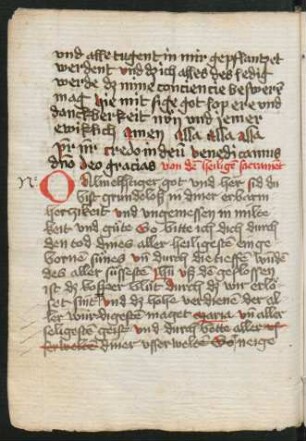 vnd alle tugent in mir gepflantzet
werdent vnd dz ich alles des ledig
werde dz mine conciencie beswern
mag die mit sige got lop ere vnd
danckberkeit nvn vnd jemer
ewiklich amen alla alla alla
pr nr credo in deu benedicamus
dno deo gracias von de heilige sacramet
O Allmechtiger got vnd her sid du
bist grundeloß in diner erbarm
hertzikeit vnd vngemessen in milte
keit vnd gůte So bitte ich dich durch
den tod dines aller heiligesten einge
borne sunes vn durch die tieffen wunde
des aller sůssesten Jhu vß de geflossen
ist dz kosper blůt durch dz wir erlo
set sint vnd dz hohe verdienē der al
ler wirdigesten maget maria vn aller
seligesten geist vnd durch bette aller vs
serwelten diner vsserwelten So neige